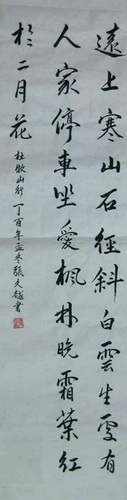 遠上寒山石徑斜白雲生處有
人家停車坐愛楓林晚霜葉紅
於二月花
杜牧山行丁酉年孟冬張文越書